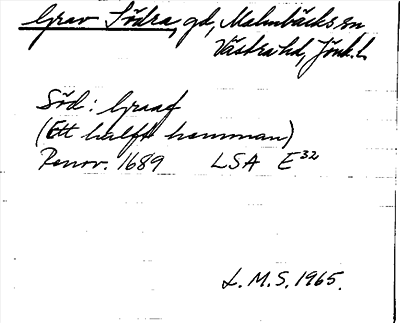 Grav Södra, gd, Malmbäcks sn
Västra hd, Jönk. l.
Söd: Graaf
(Ett halft hemman)
Renov. 1689 LSA E32
L. M. S. 1965.